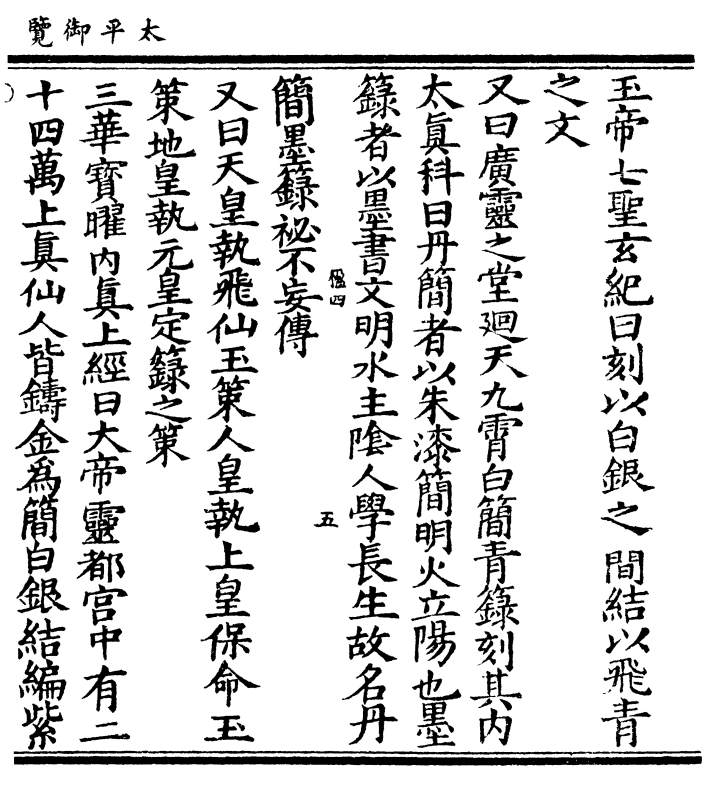 太平御覽
玉帝七聖玄紀曰刻以白銀之間結以飛青
之文
又曰廣靈之堂廻天九霄白簡青籙刻其内
太真科曰丹簡者以朱漆簡明火立陽也墨
籙者以墨書文明水主陰人學長生故名丹
五
簡墨籙祕不妄傳
又曰天皇執飛仙玉策人皇執上皇保命玉
策地皇執元皇定籙之策
三華寶曜内真上經曰大帝靈都宫中有二
十四萬上真仙人皆鑄金爲簡白銀結編紫